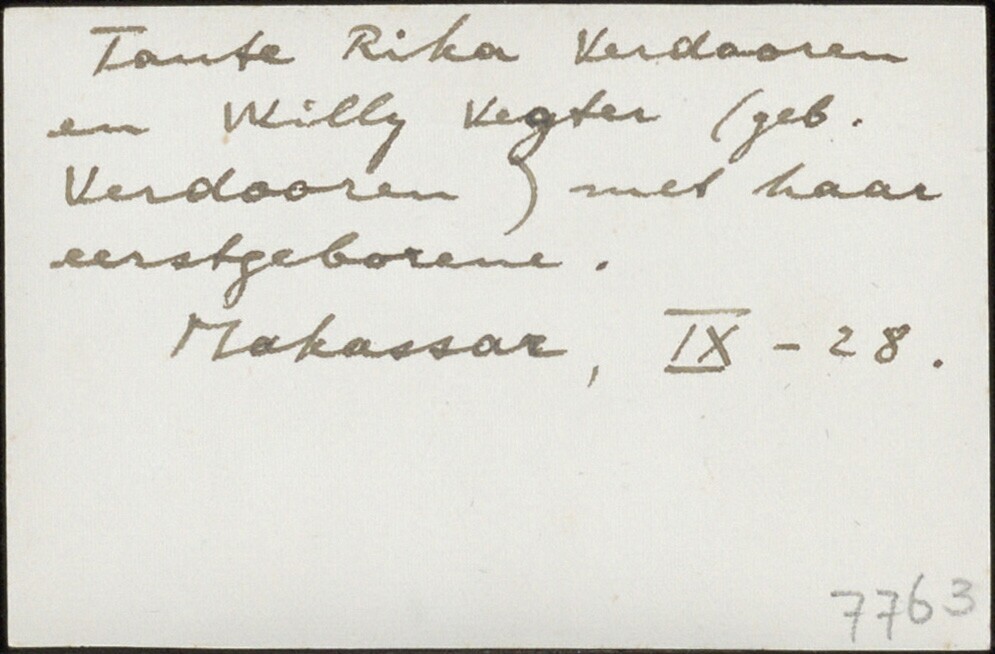 Tante Rika Verdooren
en Willy Vegter (geb.
Verdooren) met haar
eerstgeborene.
Makassar, IX - 28.
7763